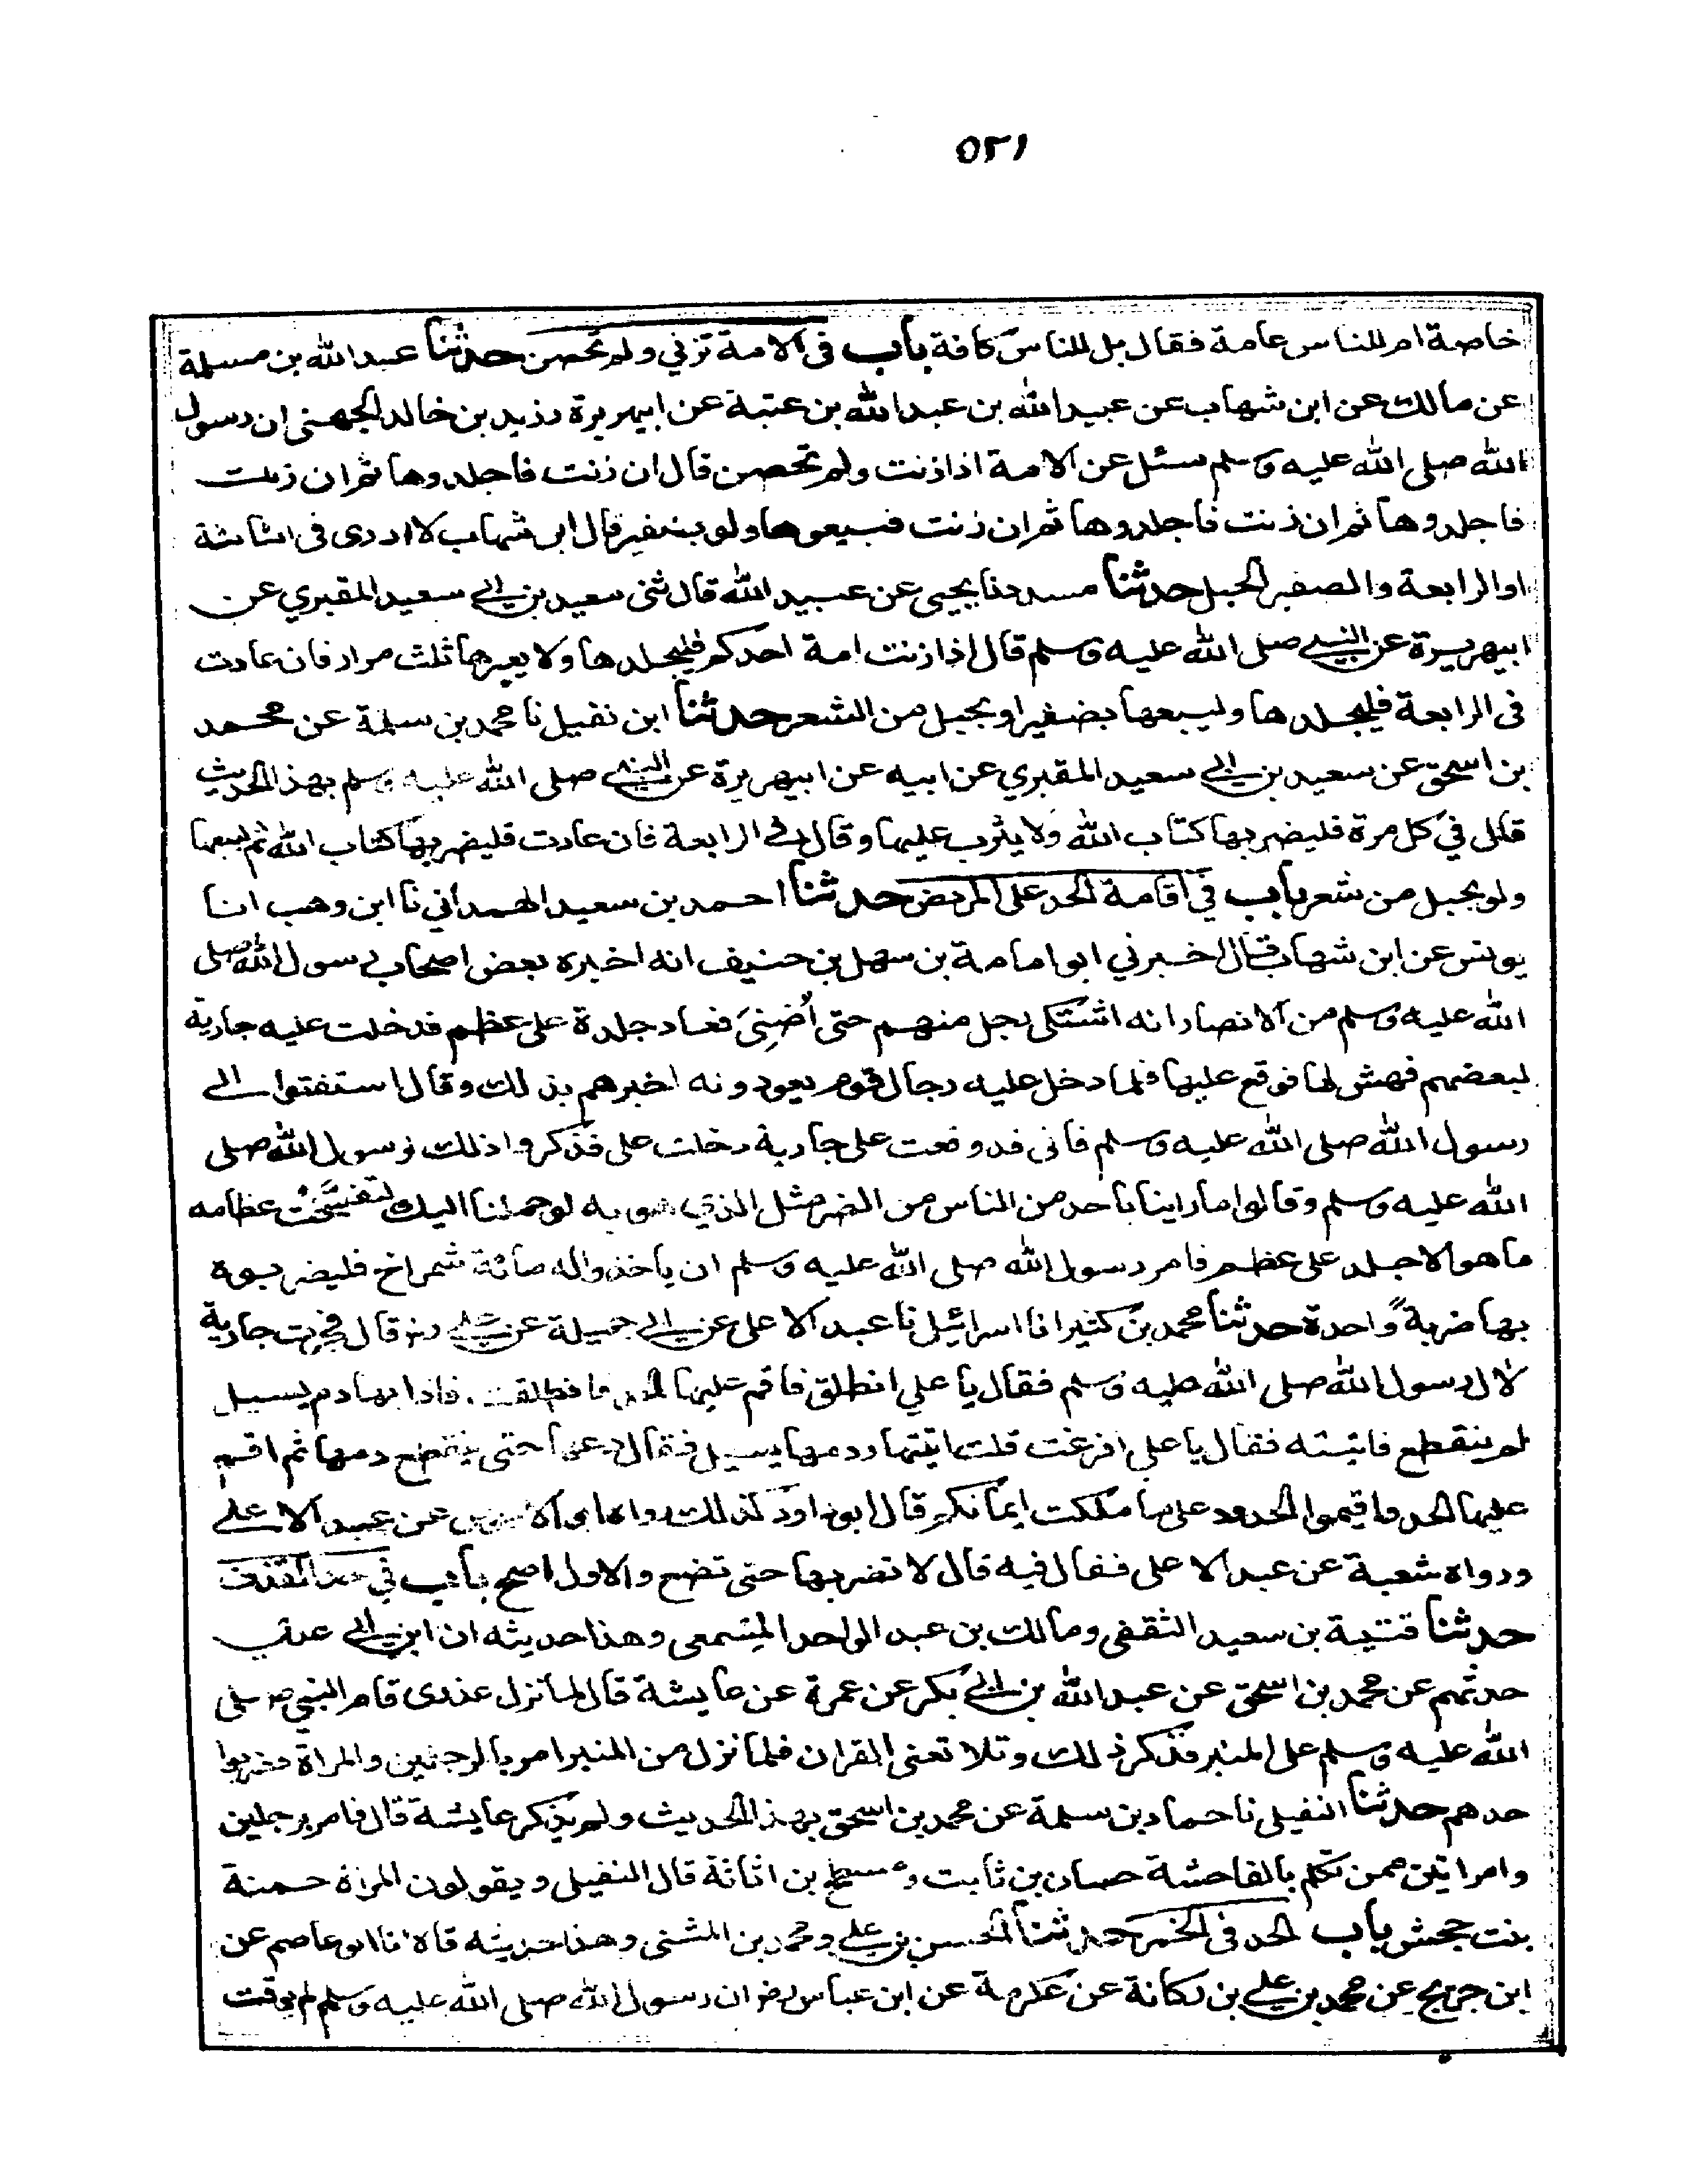 ٥٢١
خاصة ام للناس عامة فقال بل للناس كافة باب فى الامة تزني ولم تحصن حدثنا عبد الله بن مسلمة
عن مالك عن ابن شهاب عن عبيد الله بن عبد الله بن عتبة عن ابيهريرة وزيد بن خالد الجهنى ان رسول
الله صلى الله عليه وسلم سئل عن الامة اذا زنت ولم تحصن قال ان زنت فاجلدوها ثم ان زنت
فاجلدوها ثم ان زنت فاجلدوها ثم ان زنت فبيعوها ولو بضفير قال ابن شهاب لا ادرى فى الثالثة
او الرابعة والضفير الحبل حدثنا مسدد نا يحيى عن عبيد الله قال ثنى سعيد بن ابي سعيد المقبري عن
ابيهريرة عن النبي صلى الله عليه وسلم قال اذا زنت امة احدكم فليجلدها ولا يعيرها ثلث مرار فان عادت
فى الرابعة فليجلدها وليبعها بضفير او بحبل من الشعر حدثنا ابن نفيل نا محمد بن سلمة عن محمد
بن اسحق عن سعيد بن ابي سعيد المقبري عن ابيه عن ابيهريرة عن النبي صلى الله عليه وسلم بهذا الحديث
قال في كل مرة فليضربها كتاب الله ولا يثرب عليها وقال في الرابعة فان عادت فليضربها كتاب الله ثم ليبعها
ولو بحبل من شعر باب في اقامة الحد على المريض حدثنا احمد بن سعيد الهمداني نا ابن وهب انا
يونس عن ابن شهاب قال اخبرني ابو امامة بن سهل بن حنيف انه اخبره بعض اصحاب رسول الله صلى
الله عليه وسلم من الانصار انه اشتكى رجل منهم حتى أُضنِيَ فعاد جلدة على عظم فدخلت عليه جارية
لبعضهم فهش لها فوقع عليها فلما دخل عليه رجال قومه يعودونه اخبرهم بذلك وقال استفتوا لي
رسول الله صلى الله عليه وسلم فانى قد وقعت على جارية دخلت على فذكروا ذلك لرسول الله صلى
الله عليه وسلم وقالوا ما راينا باحد من الناس من الضر مثل الذي هو به لو حملناه اليك لتفسخت عظامه
ما هو الا جلد على عظم فامر رسول الله صلى الله عليه وسلم ان ياخذوا له مائة شمراخ فليضربوه
بها ضربةً واحدة حدثنا محمد بن كثير انا اسرائيل نا عبد الاعلى عن ابي جميلة عن علي رض قال فجرت جارية
لال رسول الله صلى الله عليه وسلم فقال يا علي انطلق فاقم عليها الحد فانطلقت فاذا بها دم يسيل
لم ينقطع فاتيته فقال يا على افرغت قلت اتيتها ودمها يسيل فقال دعها حتى ينقطع دمها ثم اقم
عليها الحد واقيموا الحدود على ما ملكت ايمانكم قال ابو داود كذلك رواه ابو الاحوص عن عبد الاعلى
ورواه شعبة عن عبد الاعلى فقال فيه قال لا تضربها حتى تضع والاول اصح باب في حد القذف
حدثنا قتيبة بن سعيد الثقفى ومالك بن عبد الواحد المسمعى وهذا حديثه ان ابن ابي عدي
حدثهم عن محمد بن اسحق عن عبد الله بن ابي بكر عن عمرة عن عايشة قال لما نزل عذرى قام النبي صلى
الله عليه وسلم على المنبر فذكر ذلك وتلا تعنى القران فلما نزل من المنبر امر بالرجلين والمراة فضربوا
حدهم حدثنا النفيلى نا حماد بن سلمة عن محمد بن اسحق بهذا الحديث ولم يذكر عايشة قال فامر برجلين
وامراتين ممن تكلم بالفاحشة حسان بن ثابت ومسطح بن اثاثة قال النفيلى ويقولون المراة حمنة
بنت جحش باب الحد فى الخمر حدثنا الحسن بن علي ومحمد بن المثنى وهذا حديثه قالا نا ابو عاصم عن
ابن جريج عن محمد بن علي بن ركانة عن عكرمة عن ابن عباس رض ان رسول الله صلى الله عليه وسلم لم يوقت